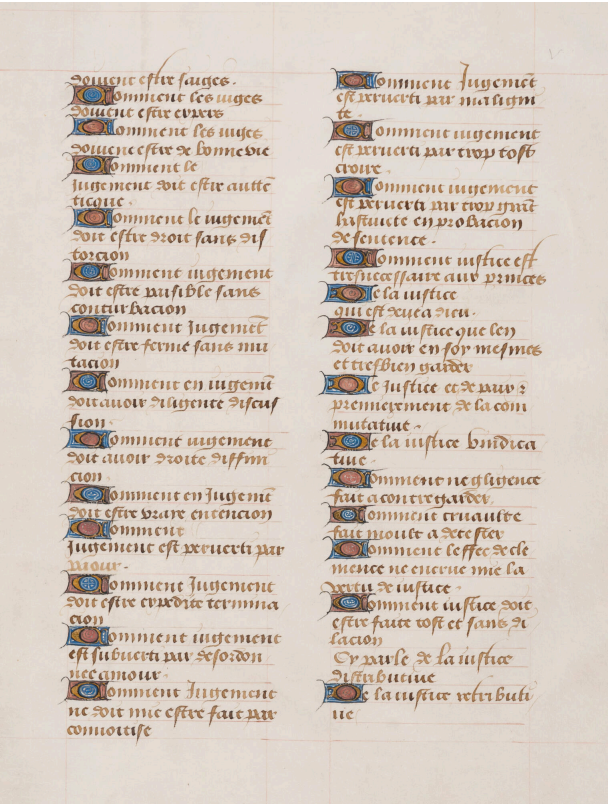 doivent estre saiges.
Comment les iuges
doivent estre expers
Comment les iuges
doivent estre de bonne vie
Comment le
Jugement doit estre autte
ticque.
Comment le iugemẽt
doit estre droit sans dis
torcion
Comment iugement
doit estre paisible sans
conturbacion
Comment Jugemẽt
doit estre ferme sans mu
tacion
Comment en iugemẽt
doit auoir diligente discus
sion.
Comment iugement
doit auoir droite diffini
cion.
Comment en Jugemẽt
doit estre vraye entencion
Comment
Jugement est perverti par
paour.
Comment Jugement
doit estre expedite termina
cion
Comment iugement
est subuerti par desordon
nee amour.
Comment Jugement
ne doit mie estre fait par
conuoitise
Comment Jugemẽt
est perverti par maligni
te.
Comment iugement
est perverti par trop tost
croire.
Comment iugement
est perverti par trop grãt
lastuicte en probacion
de sentence.
Comment iustice est
tresnecessaire aux princes
De la iustice
qui est deue a dieu.
De la iustice que len
doit auoir en soy mesmes
et tresbien garder
De Justice et de paix
premierement de la com
mutatiue.
De la iustice vindica
tiue.
Comment negligence
fait a contregarder.
Comment cruaulte
fait moult a detester
Comment leffec de cle
mence ne encrue mie la
vertu de iustice.
Comment iustice doit
estre faite tost et sans di
lacion
Cy parle de la iustice
distributiue
De la iustice retributi
ue